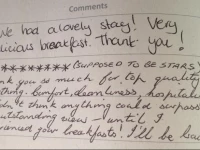 Comments
We had a lovely stay! Very
delicious breakfast. Thank you!
******** (SUPPOSED TO BE STARS!)
thank you so much for top quality
thing. Comfort, cleanliness, hospitality
didn't think anything could surpass
outstanding views – until I
your breakfasts! I'll be back